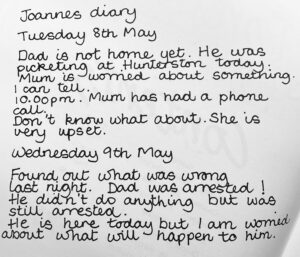 Joannes diary
Tuesday 8th May
Dad is not home yet. He was
picketing at Hunterston today.
Mum is worried about something.
I can tell.
10.00pm. Mum has had a phone
call.
Don't know what about. She is
very upset.
Wednesday 9th May
Found out what was wrong
last night. Dad was arrested!
He didn't do anything but was
still arrested.
He is here today but I am worried
about what will happen to him.